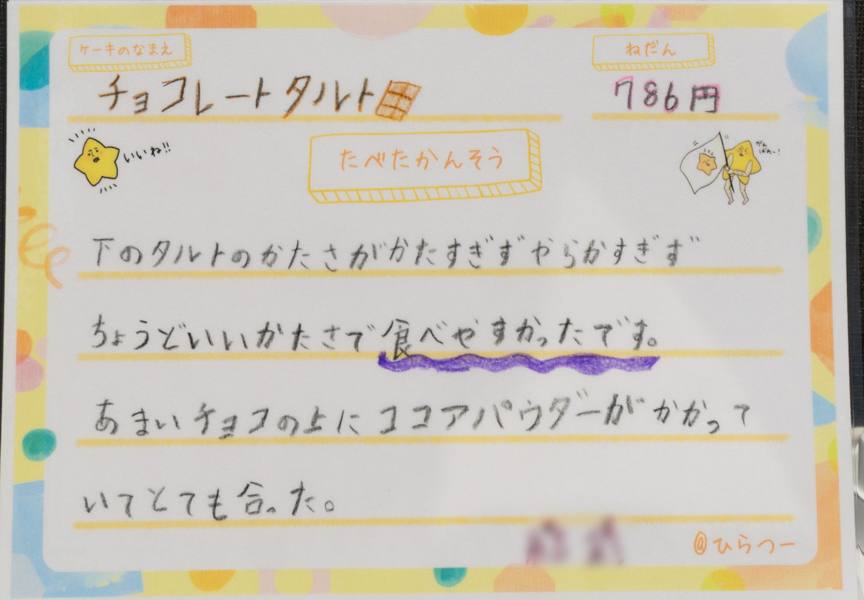 ケーキのなまえ
チョコレートタルト
ねだん
786円
いいね!!
たべたかんそう
がんばれー!
下のタルトのかたさがかたすぎずやらかすぎず
ちょうどいいかたさで食べやすかったです。
あまいチョコの上にココアパウダーがかかって
いてとても合った。
@ひらつー